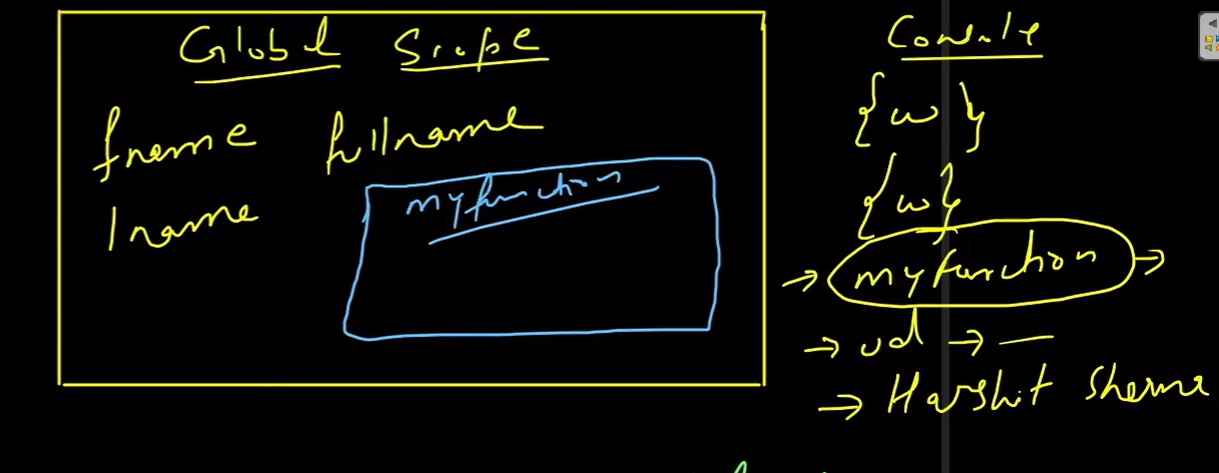 Global Scope
fname fullname
lname
myfunction
Console
{w}
{w}
→ myfunction →
→ ud → —
→ Harshit Sharma